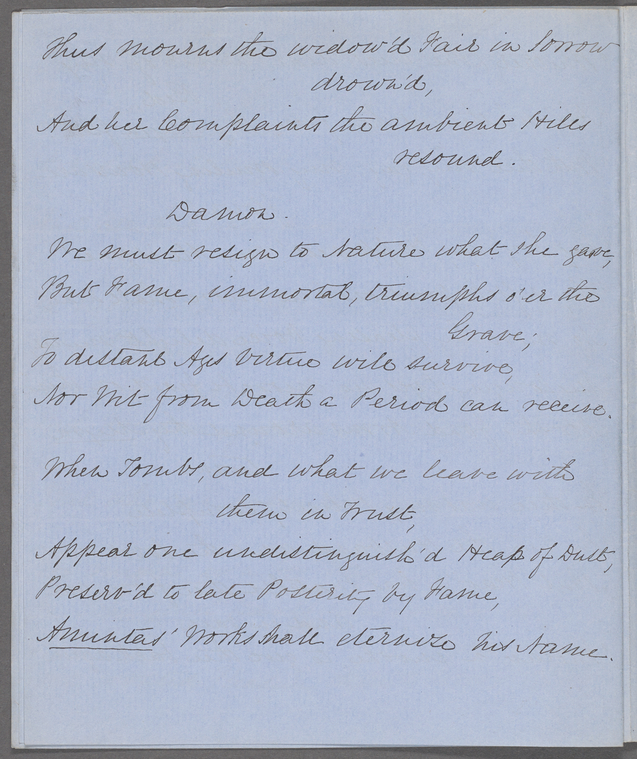 Thus mourns the widow'd Fair in Sorrow
drown'd,
And her Complaints the ambient Hills
resound.
Damon.
We must resign to Nature what she gave,
But Fame, immortal, triumphs o'er the
Grave;
To distant Ages Virtue will survive,
Nor Wit from Death a Period can receive.
When Tombs, and what we leave with
them in Trust,
Appear one undistinguish'd Heap of Dust,
Preserv'd to late Posterity by Fame,
Amintas' Works shall eternize his Name.